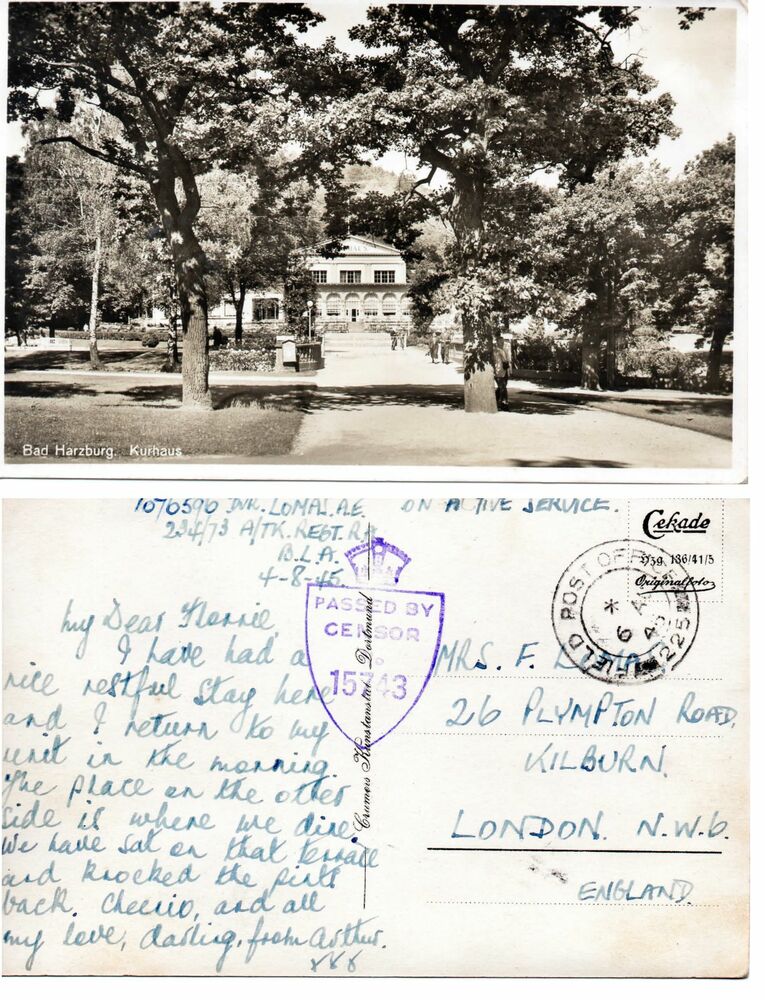 HAUS
Bad Harzburg. Kurhaus
1070590 DVR. LOMAS. A.E.
234/73 A/TK. REGT. R.A
B.L.A.
4-8-45.
ON ACTIVE SERVICE.
My Dear Florrie,
I have had a
nice restful stay here
and I return to my
unit in the morning.
The place on the other
side is where we dine.
We have sat on that terrace
and knocked the pints
back. Cheerio, and all
my love, darling, from Arthur.
xxx
PASSED BY
CENSOR
No
15743
Crumers Kunstanstalt Dortmund
Cekade
D59 136/41/5
Originalfoto
FIELD POST OFFICE
*
6 AU
45
225
MRS. F. LOMAS
26 PLYMPTON ROAD,
KILBURN.
LONDON. N.W.6.
ENGLAND.